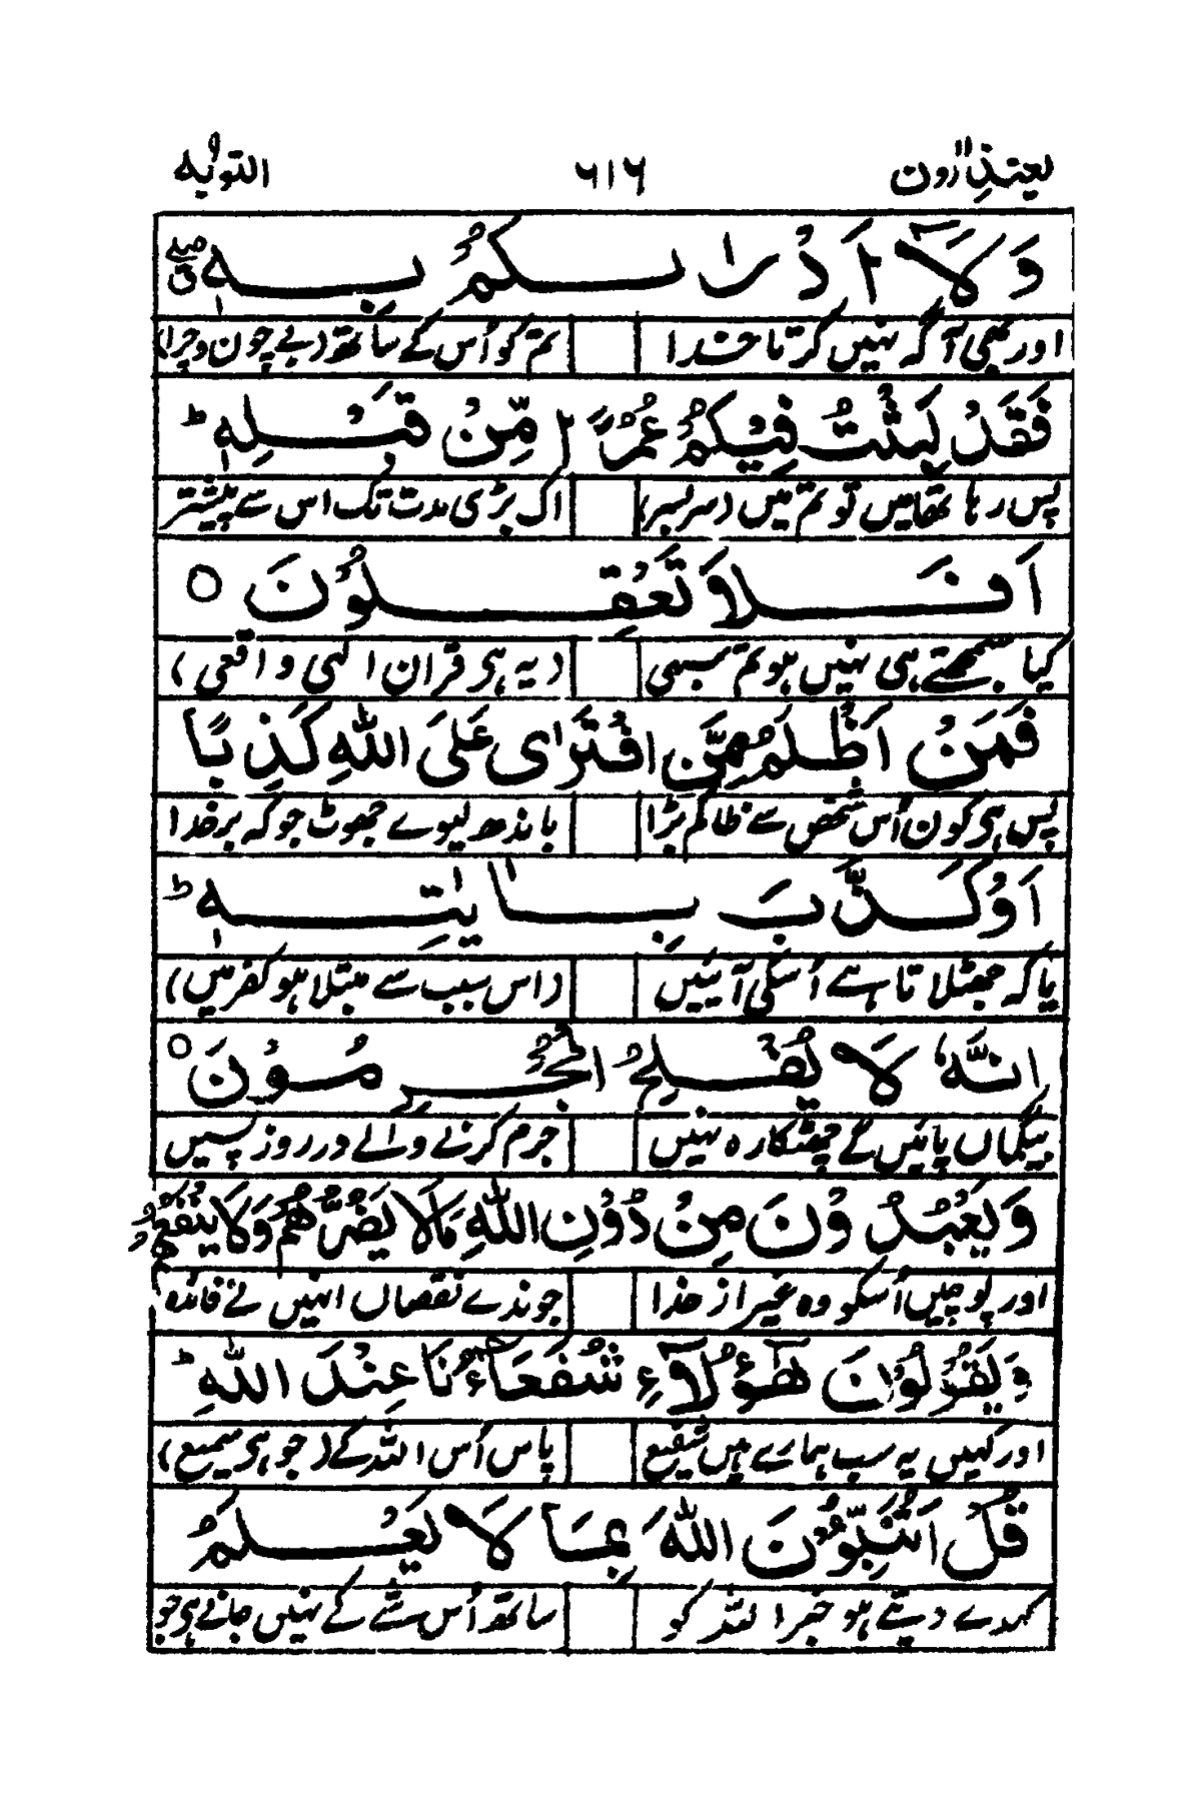 یعتذرون ۱۱ ۶۱۶ التوبه ۹
وَلَآ اَدْرٰىكُمْ بِهٖ
اور بھی آگہ نہیں کرتا خدا تم کو اُس کے ساتھ (بے چون و چرا)
فَقَدْ لَبِثْتُ فِيْكُمْ عُمُرًا مِّنْ قَبْلِهٖ ؕ
پس رہا تھا میں تو تم میں (سربسر) اک بڑی مدت تک اس سے پیشتر
اَفَلَا تَعْقِلُوْنَ ○
کیا سمجھتے ہی نہیں ہو تم سبھی (یہ ہی قرآن الٰہی واقعی)
فَمَنْ اَظْلَمُ مِمَّنِ افْتَرٰى عَلَى اللّٰهِ كَذِبًا
پس ہی کون اُس شخص سے ظالم بڑا باندھ لیوے جھوٹ جو کہ بر خدا
اَوْ كَذَّبَ بِاٰيٰتِهٖ ؕ
یا کہ جھٹلاتا ہے اُسکی آیتیں (اس سبب سے مبتلا ہو کفر میں)
اِنَّهٗ لَا يُفْلِحُ الْمُجْرِمُوْنَ ○
بیگماں پائیں گے چھٹکارہ نہیں جرم کرنے والے در روز پسیں
وَيَعْبُدُوْنَ مِنْ دُوْنِ اللّٰهِ مَا لَا يَضُرُّهُمْ وَلَا يَنْفَعُهُمْ
اور پوجیں اُسکو وہ غیر از خدا جو ندے نقصاں انہیں نے فائدہ
وَيَقُوْلُوْنَ هٰٓؤُلَآءِ شُفَعَآؤُنَا عِنْدَ اللّٰهِ ؕ
اور کہیں یہ سب ہمارے ہیں شفیع پاس اُس اللہ کے (جو ہی سمیع)
قُلْ اَتُنَبِّـُٔوْنَ اللّٰهَ بِمَا لَا يَعْلَمُ
کہدے دیتے ہو خبر اللہ کو ساتھ اُس شئے کے نہیں جانے ہی جو